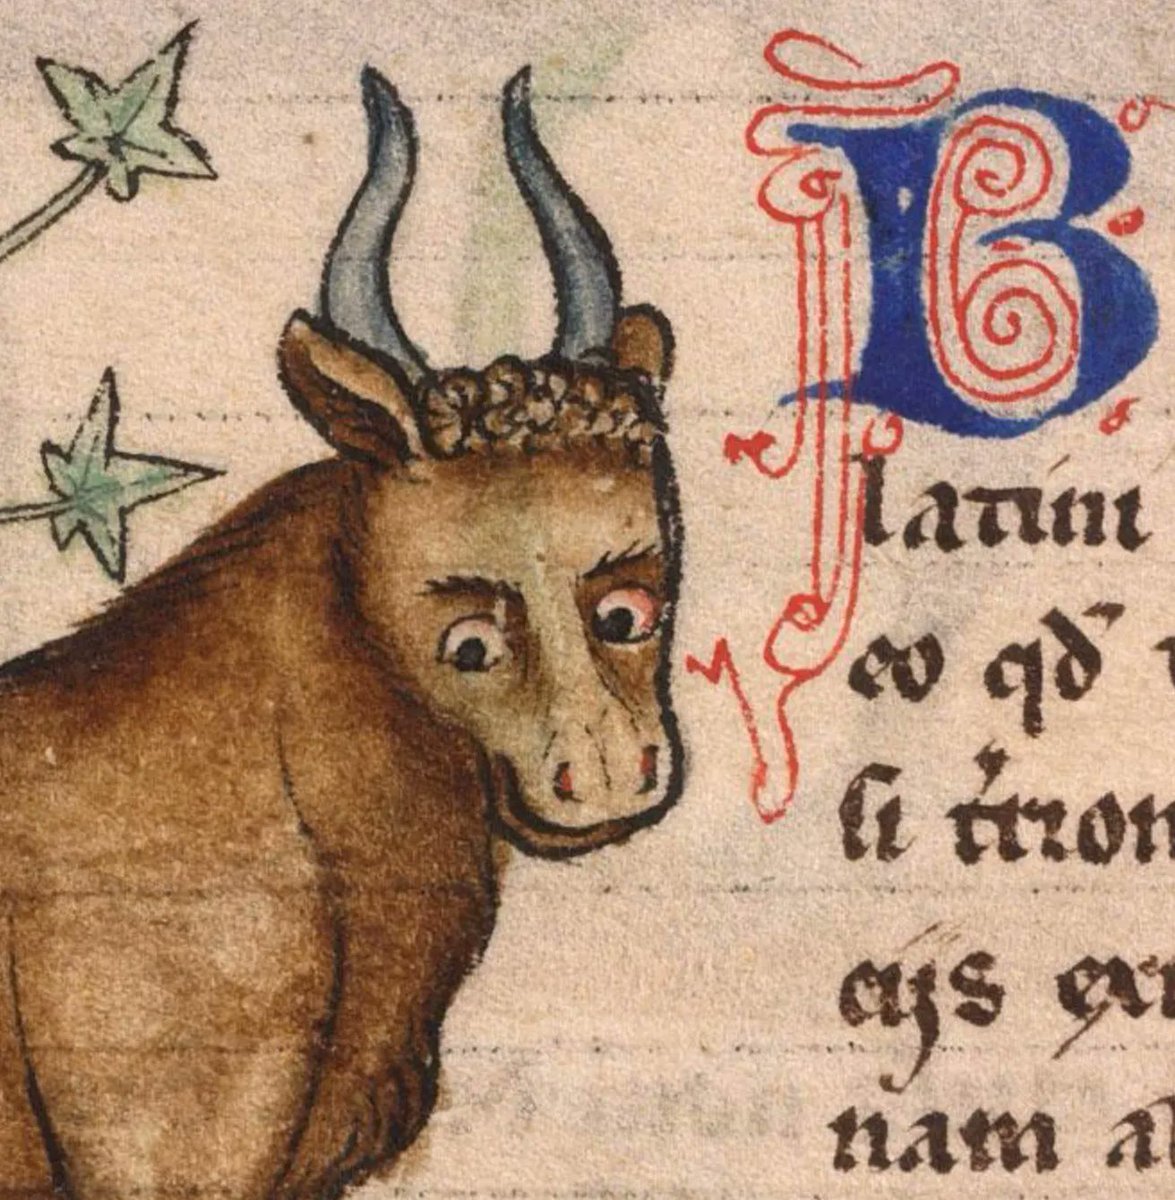 B
latini
eo qd̄
si t'rion
cijs exi
nam a